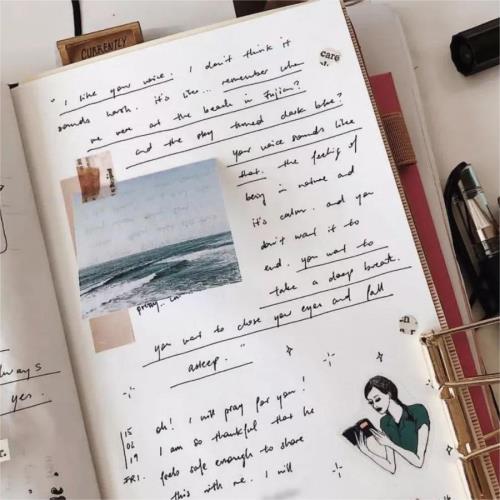 CURRENTLY
care
"I like your voice. I don't think it
sounds harsh. it's like... remember when
we were at the beach in Fujian?
and the sky turned dark blue?
your voice sounds like
that. the feeling of
being in nature and
it's calm. and you
don't want it to
end. you want to
take a deep breath.
you want to close your eyes and fall
asleep."
15
06
19
FRI.
oh! I will pray for you!
I am so thankful that he
feels safe enough to share
this with me. I will
always
yes.